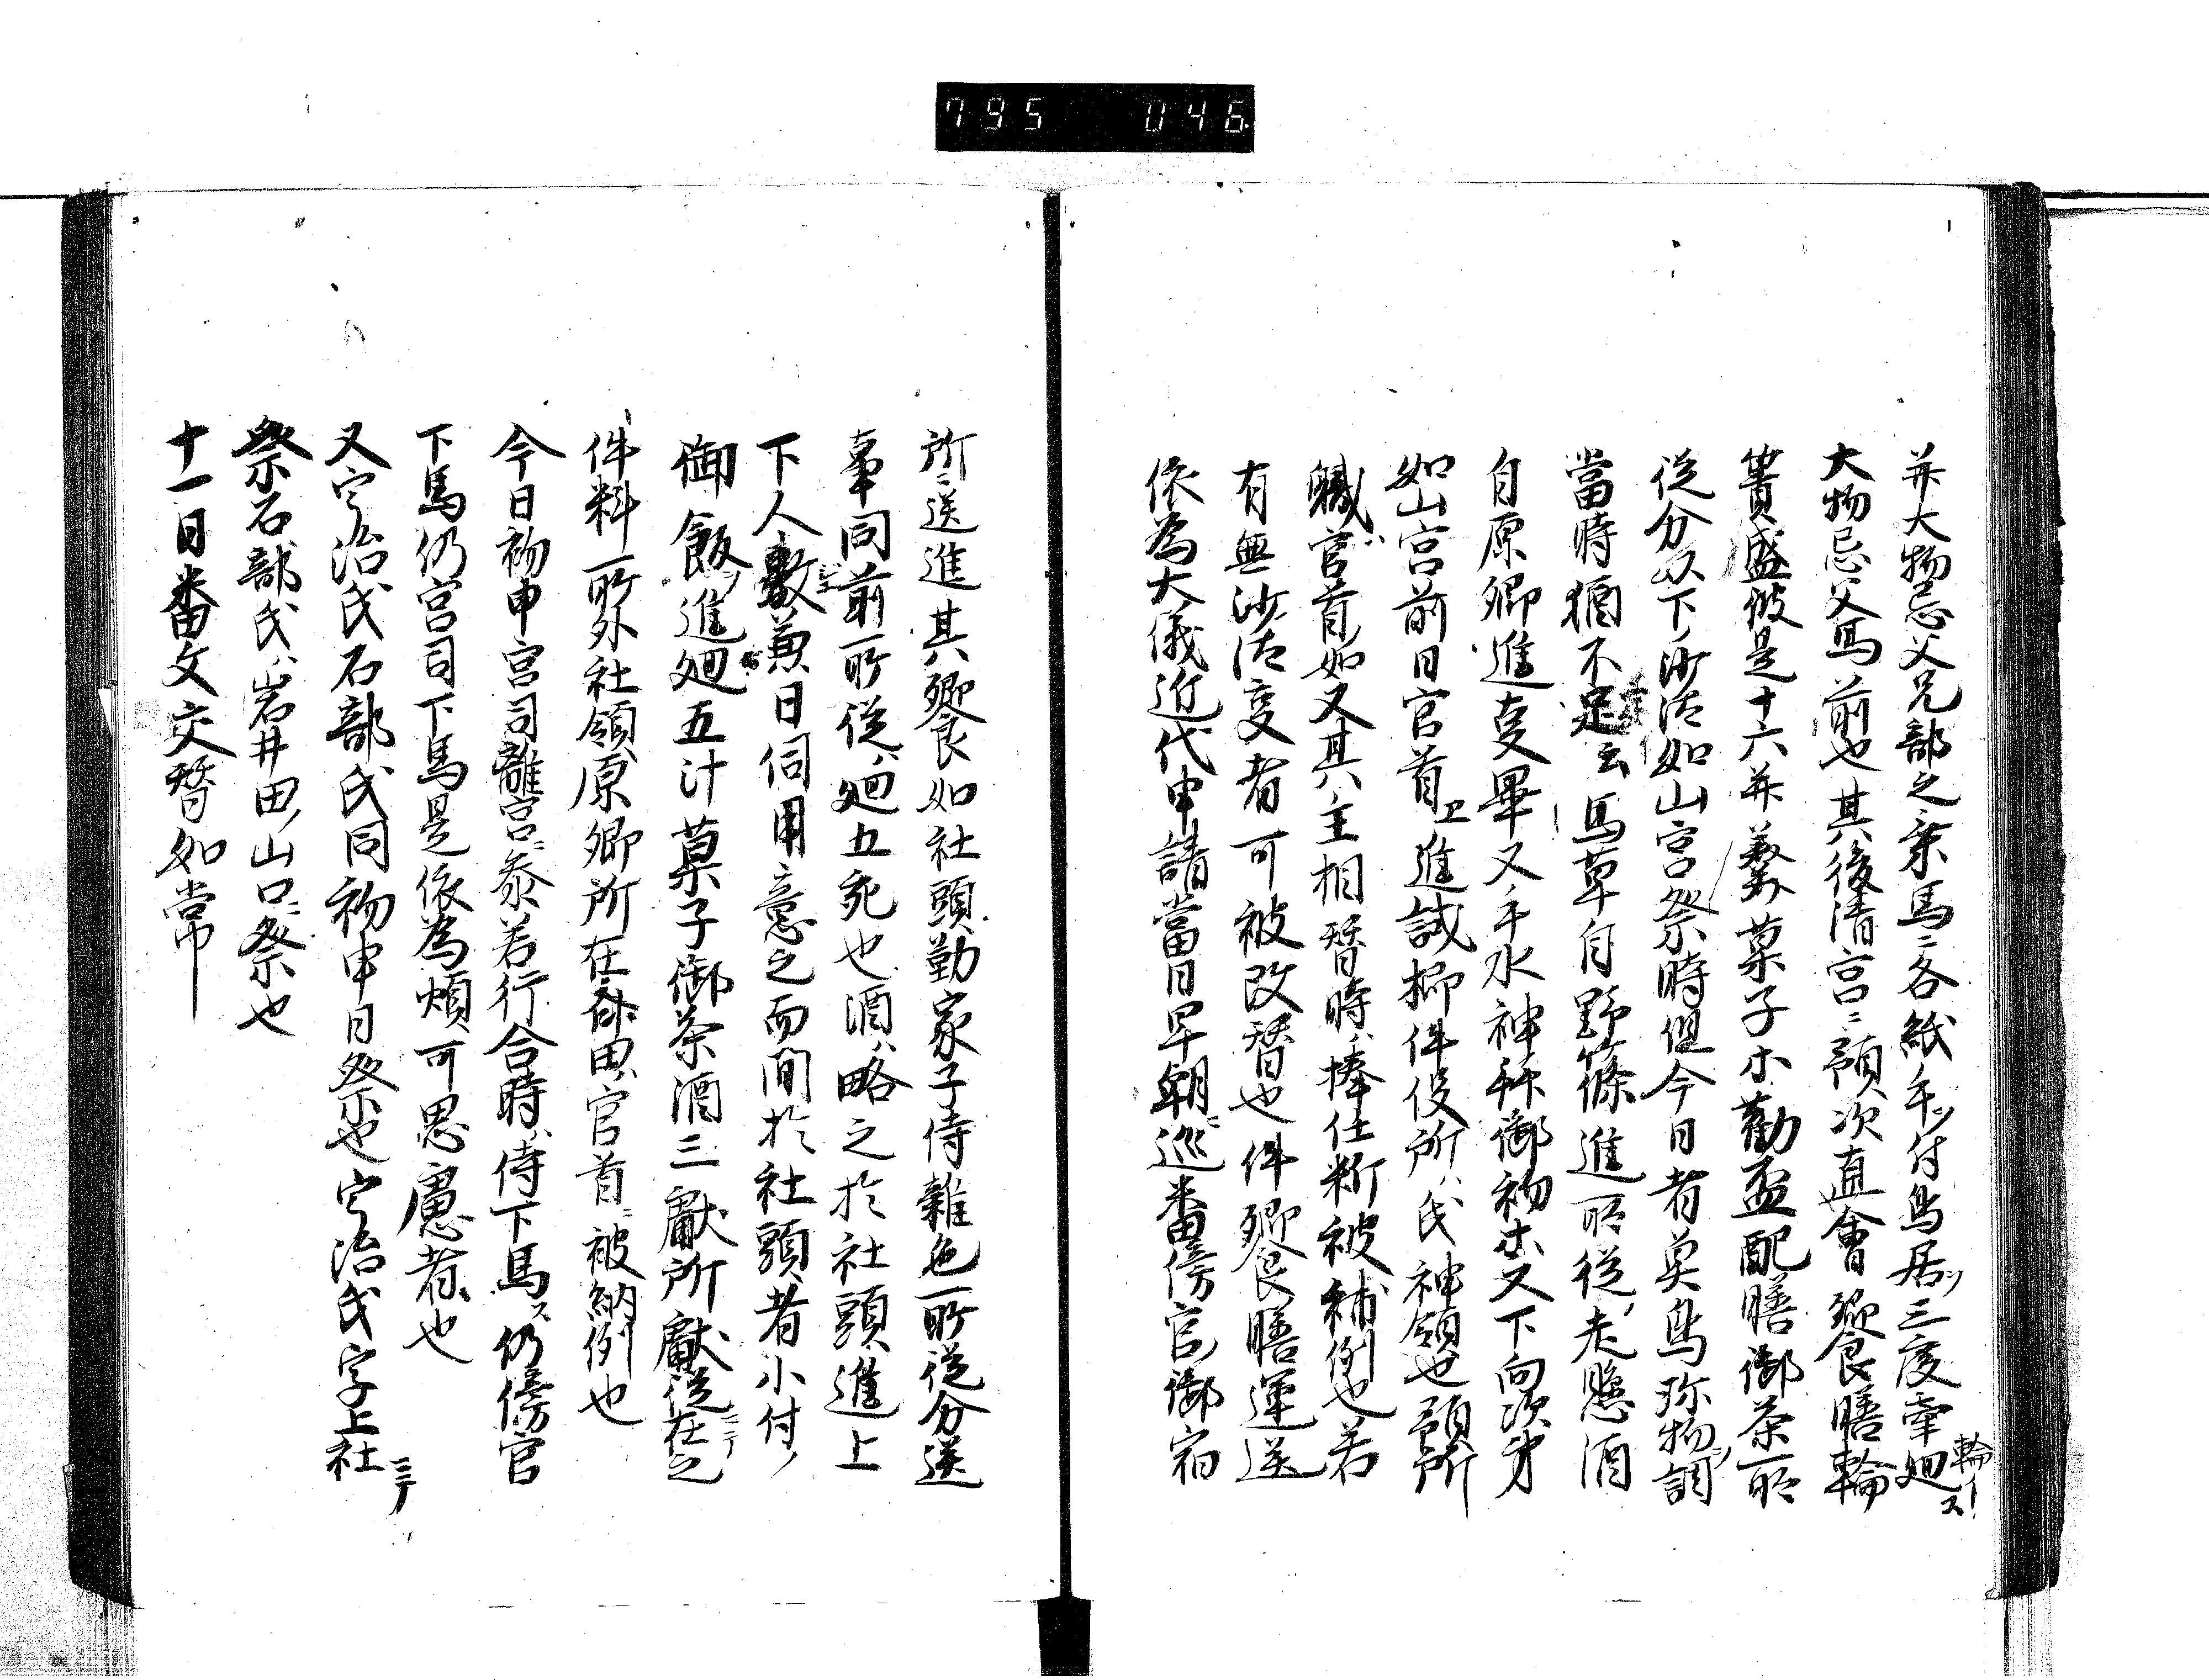 795 046
并大物忌父兄部之乗馬ニ各紙手ツ付鳥居ツ三度牽廻輪ース
大物忌父馬前也其後清宮ニ預次直會饗膳輪
貴盛彼是十六并菓子小勧盃配膳御茶所
従分以下ノ沙汰如山宮祭時但今日者奠鳥弥物ノ調
當時猶不足云馬草自野篠進所従走懸酒
自原郷進直畢又手水神拝御祓出又下向次第
如山宮前日官首上進誡抑件役所ハ氏神領也預所
職官首如又其主相替時ハ捧仕断被補例也若
有無沙汰直者可被改替也件饗膳運送
依為大儀近代申請當日早朝ニ巡番傍官御宿
所ニ送進其饗如社頭勤家子侍雑色所従分送
事同前所従ハ廻五充也酒ハ略之於社頭進上
下人數兼日伺用意之而間於社頭者小付ノ
御飯ノ進廻五汁菓子御茶酒三獻所獻従ニテ在之
件料所外社領原郷所在田官首ニ被納例也
今日祓申宮司離宮ニ参若行合時ハ侍下馬ス仍傍官
下馬仍宮司下馬是依為煩可思慮者也
又宇治氏石部氏同祓申日祭也宇治氏字上社ニテ
祭石部氏ハ岩井田ノ山口ニ祭也
十一日番文交替如常